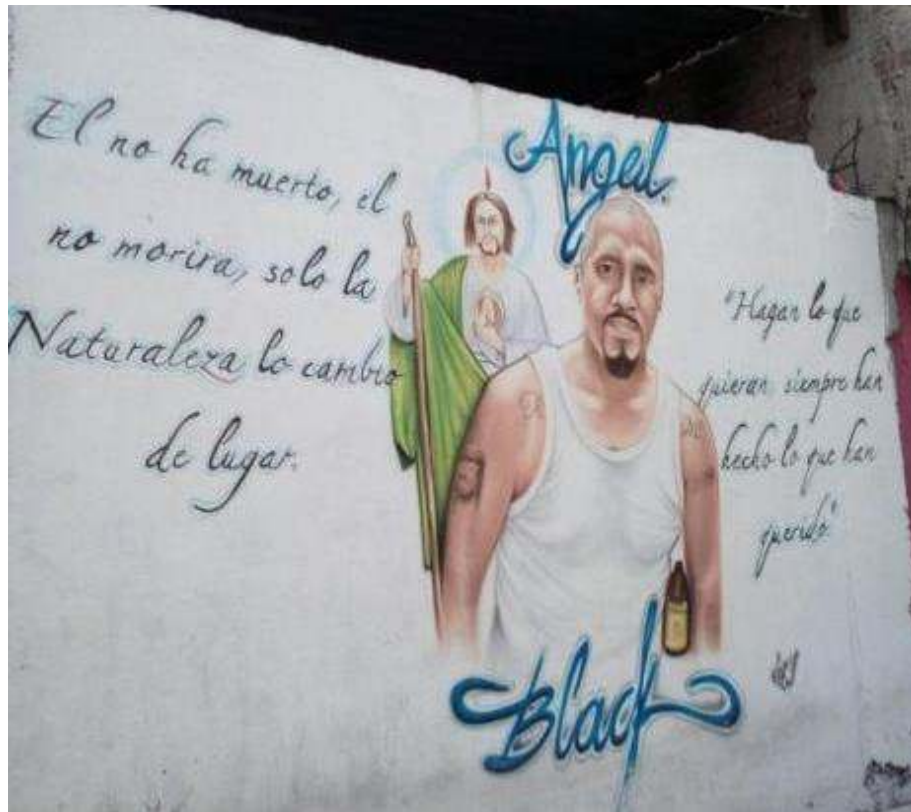 El no ha muerto, el
no morira, solo la
Naturaleza lo cambio
de lugar.
Angel.
"Hagan lo que
quieran, siempre han
hecho lo que han
querido"
Black